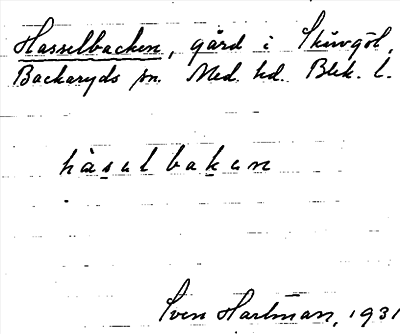 Hasselbacken, gård i Skörgöl,
Backaryds sn. Med. hd. Blek. l.
hàselbaken
Sven Hartman, 1931